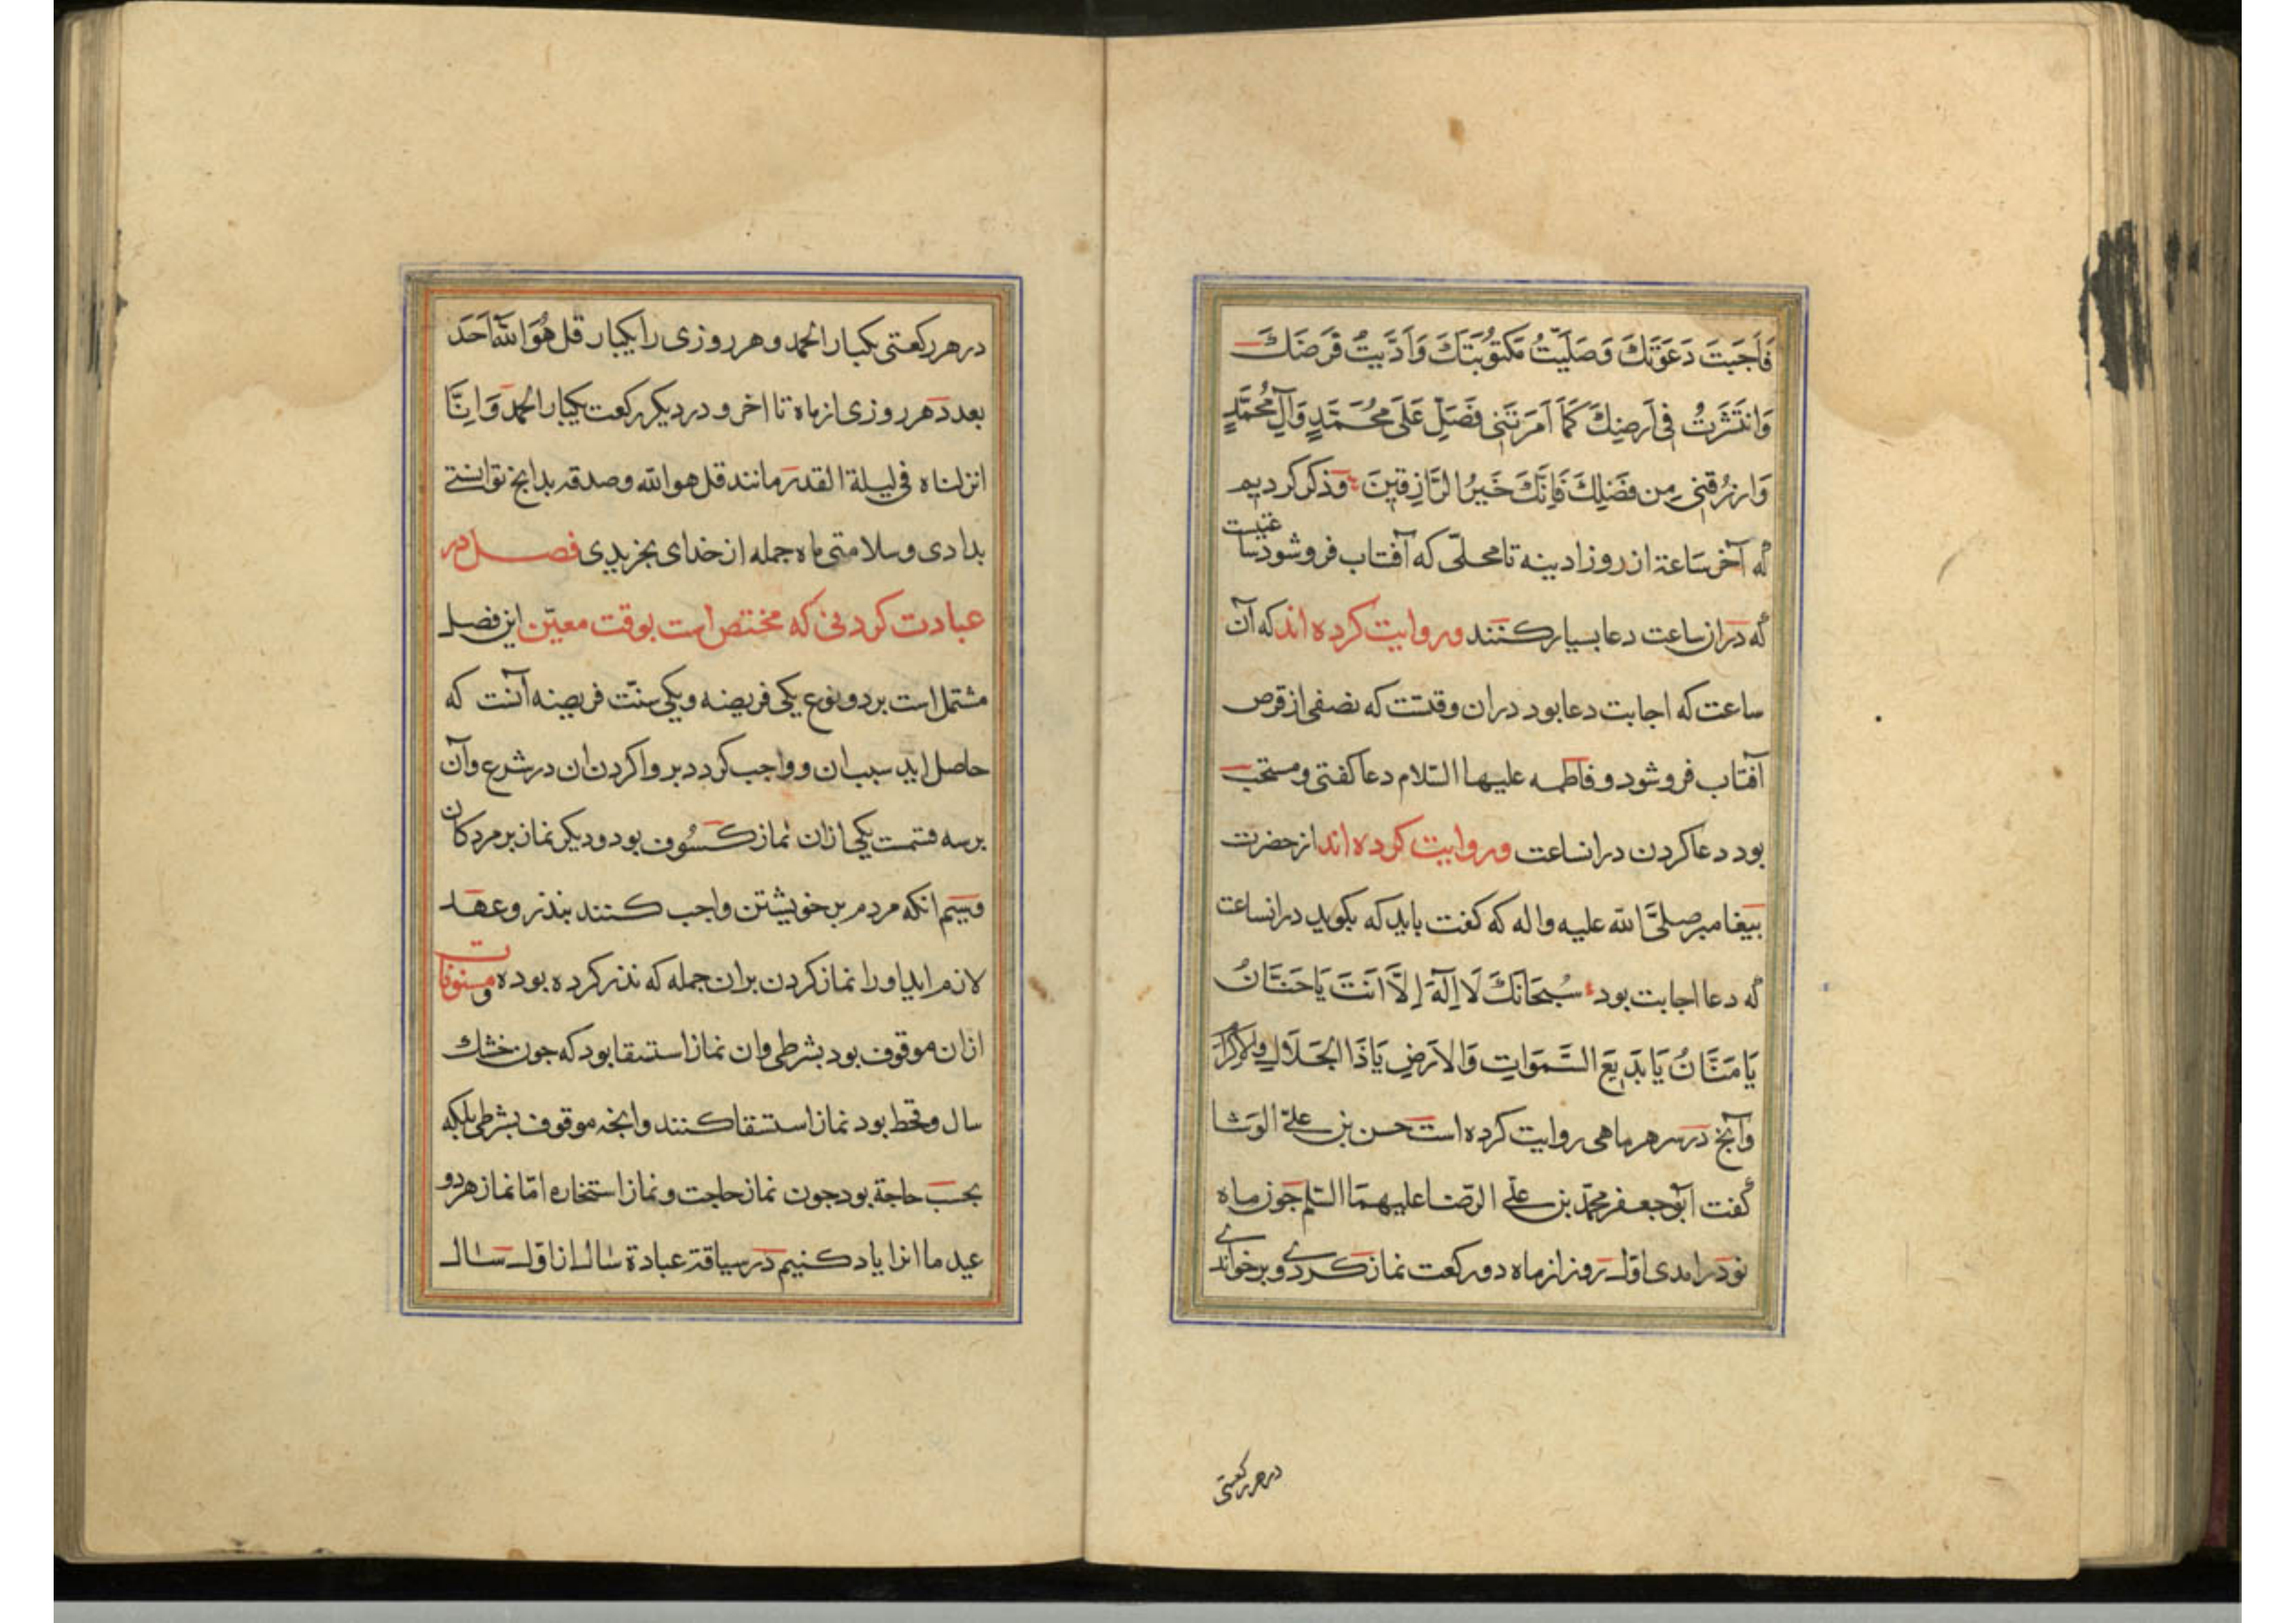 فَاَجَبتَ دَعوَتَكَ وَصَلَيّتُ مَكتوُبَتَكَ وَاَدَّيتُ فَرَضَكَ
وَانتَشَرتُ فی اَرضِكَ كَمَا اَمَرتَنی فَصَلِّ عَلَی مُحَمَّدٍ وَآلِ مُحَمَّدٍ
وَارزُقنی مِن فَضلِكَ فَاِنَّكَ خَيرُ الرَّازِقينَ وذکر کردیم
که آخر ساعة از روز ادینه تا محلّی که آفتاب فرو شود
که در ان ساعت دعا بسیار کنند وروایت کرده اند که آن
ساعت که اجابت دعا بود دران وقتست که نصفی از قرص
آفتاب فرو شود و فاطمه علیها السّلام دعا کفتی و مستحبّ
بود دعا کردن درانساعت وروایت کرده اند از حضرت
بیغامبر صلّی الله علیه واله که کفت باید که بکوید درانساعت
که دعا اجابت بود سُبحَانَكَ لَا اِلَهَ اِلَّا اَنتَ یَا حَنَّانُ
یَا مَنَّانُ یَا بَدیعَ السَّمَوَاتِ وَالاَرضِ یَا ذَا الجَلَالِ وَالاِکرَامِ
وآنج در سر هر ماهی روایت کرده است حسن بن علیّ الوشا
کفت ابو جعفر محمّد بن علی الرّضا علیهما السّلم جون ماه
نو درامدی اوّل روز از ماه دو رکعت نماز کردی و برخواندی
در هر رکعتی
در هر رکعتی یکبار الحمد و هر روزی را یکبار قل هُوَ الله اَحَد
بعدد هر روزی از ماه تا اخر و در دیکر رکعت یکبار الحمد وَاِنَّا
انزلناه فی لیلة القدر مانند قل هو الله و صدقه بدانج توانستی
بدادی و سلامتی ماه جمله از خدای بخریدی فصل در
عبادت کردنی که مختص است بوقت معیّن این فصل
مشتمل است بر دو نوع یکی فریضه و یکی سنّت فریضه آنست که
حاصل اید سبب ان و واجب کردد برو اکردن ان در شرع وآن
برسه قسمت یکی ازان نماز کسُوف بود و دیکر نماز بر مردکان
وسیم انکه مردم بر خویشتن واجب کنند بنذر وعهد
لازم اید اورا نماز کردن بران جمله که نذر کرده بوده و مسنونات
ازان موقوف بود بشرطی وان نماز استسقا بود که جون خشك
سال و قحط بود نماز استسقا کنند وانجه موقوف بشرطی بلکه
بحسب حاجة بود جون نماز حاجت و نماز استخاره امّا نماز هر دو
عید ما انرا یاد کنیم در سیاقة عبادة سال از اوّل سال